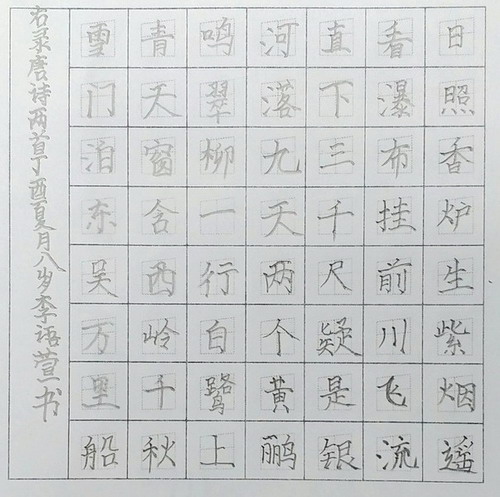 日照香炉生紫烟遥
看瀑布挂前川飞流
直下三千尺疑是银
河落九天两个黄鹂
鸣翠柳一行白鹭上
青天窗含西岭千秋
雪门泊东吴万里船
右录唐诗两首丁酉夏月八岁李语萱书